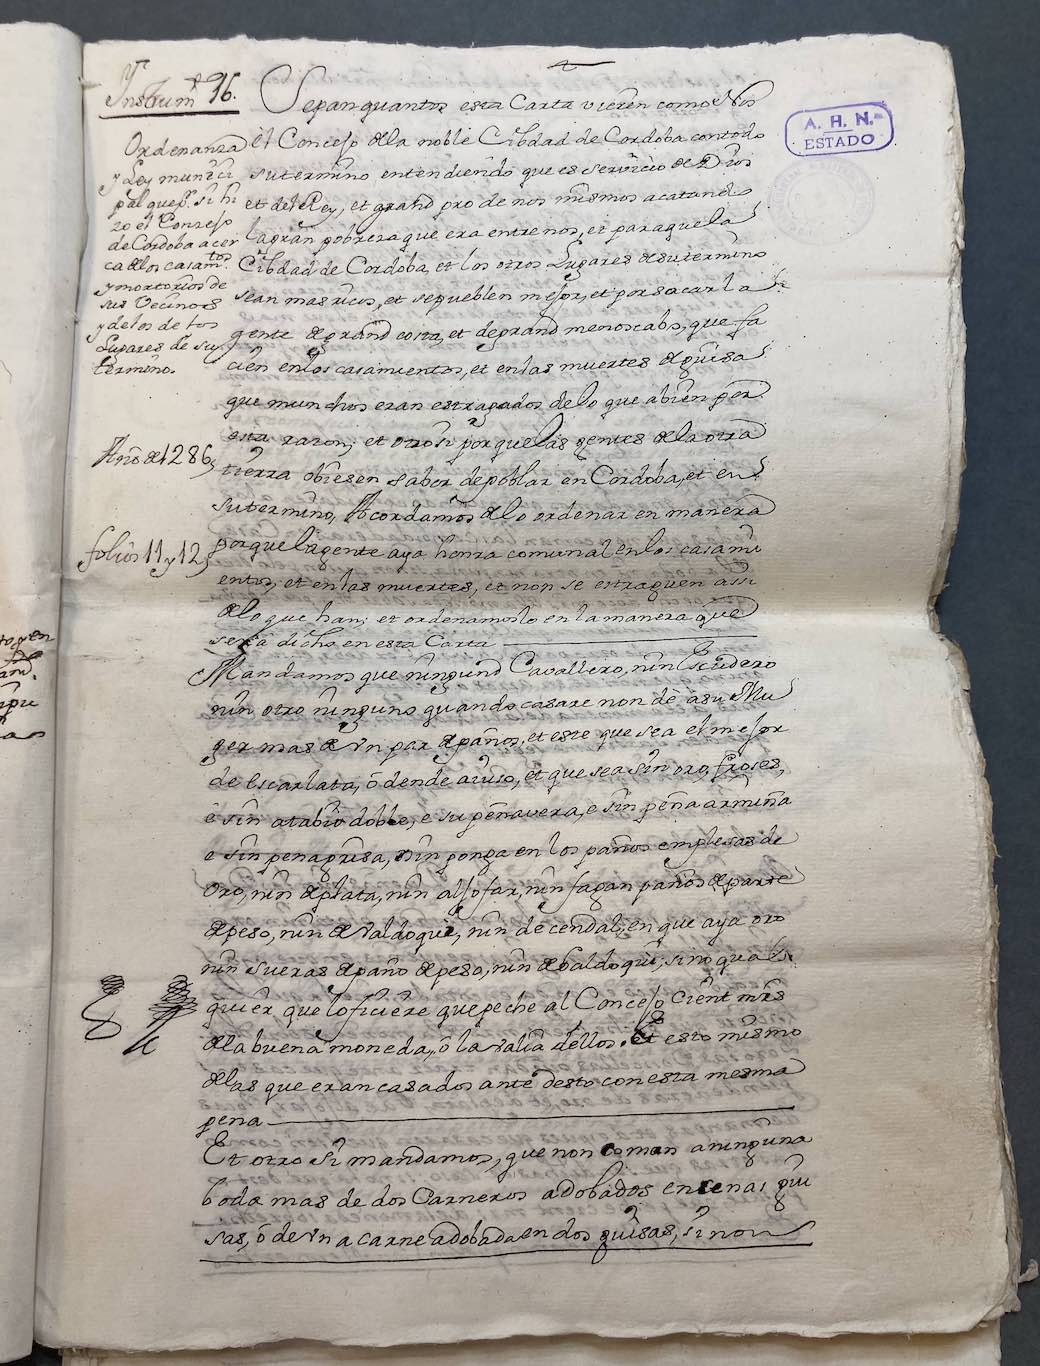 Ynstrumto 96.
Ordenanza
y Ley munici
pal que pa. si hi
zo el Conzejo
de Cordoba acer
ca de los casamtos.
y mortorios de
sus Vecinos
y de los de los
Lugares de su
termino.
Año de 1286,
folios 11 y 12,
A. H. N.
ESTADO
Sepan quantos esta Carta vieren como Nos
el Concejo de la noble Cibdad de Cordoba con todo
su termino entendiendo que es servicio de Dios
et del Rey, et grand pro de nos mismos acatando
la gran pobreza que era entre nos, et para que la
Cibdad de Cordoba, et los otros Lugares de su termino
sean mas ricos, et se pueblen mejor, et por sacar la
gente de grand costa, et de grand menoscabo, que fa
cien en los casamientos, et en las muertes de guisa
que munchos eran estragados de lo que abien por
esta razon; et otrosi por que las gentes de la otra
tierra obiesen sabor de poblar en Cordoba, et en
su termino, Acordamos de lo ordenar en manera
porque la gente aya honra comunal en los casami
entos, et en las muertes, et non se estraguen assi
de lo que han; et ordenamoslo en la manera que
será dicho en esta Carta
Mandamos que ningund Cavallero, nin Escudero
nin otro ninguno quando casare non dé á su Mu
ger mas de vn par de paños, et este que sea el mejor
de Escarlata, ó dende aiuso, et que sea sin oro, froses,
é sin atabio doble, e su peñavera, e sin peña armiña
e sin pena grisa, nin ponga en los paños empiesas de
oro, nin de plata, nin aljofar, nin fagan paños de parte
de peso, nin de valdoqui, nin de cendal, en que aya oro
nin sueras de paño de peso, nin de baldoqui; sino qual
quier que lo ficiere que peche al Concejo Cient mrs
de la buena moneda, ó la valia dellos. Et esto mismo
de las que eran casados ante desto con esta mesma
pena
Et otro si mandamos, que non coman a ninguna
boda mas de dos Carneros adobados en senas gui
sas, ó de vna carne adobada en dos guisas, si non